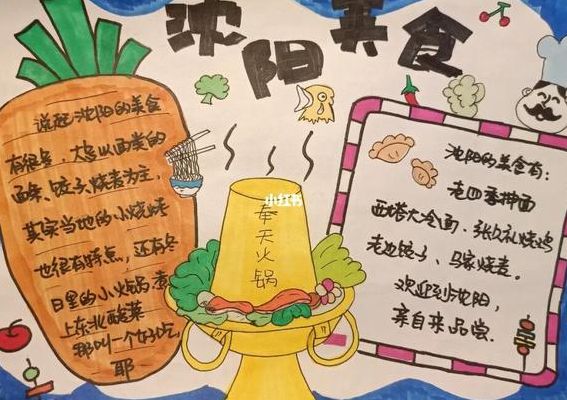 沈阳美食
说起沈阳的美食
有很多,大多以面类的
面条、饺子、烧麦为主,
其实当地的小烧烤
也很有特点,还有冬
日里的小火锅,煮
上东北酸菜
那叫一个好吃
耶
小红书
奉天火锅
沈阳的美食有:
老四季抻面
西塔大冷面、张久礼烧鸡
老边饺子、马家烧麦。
欢迎到沈阳,
亲自来品尝.